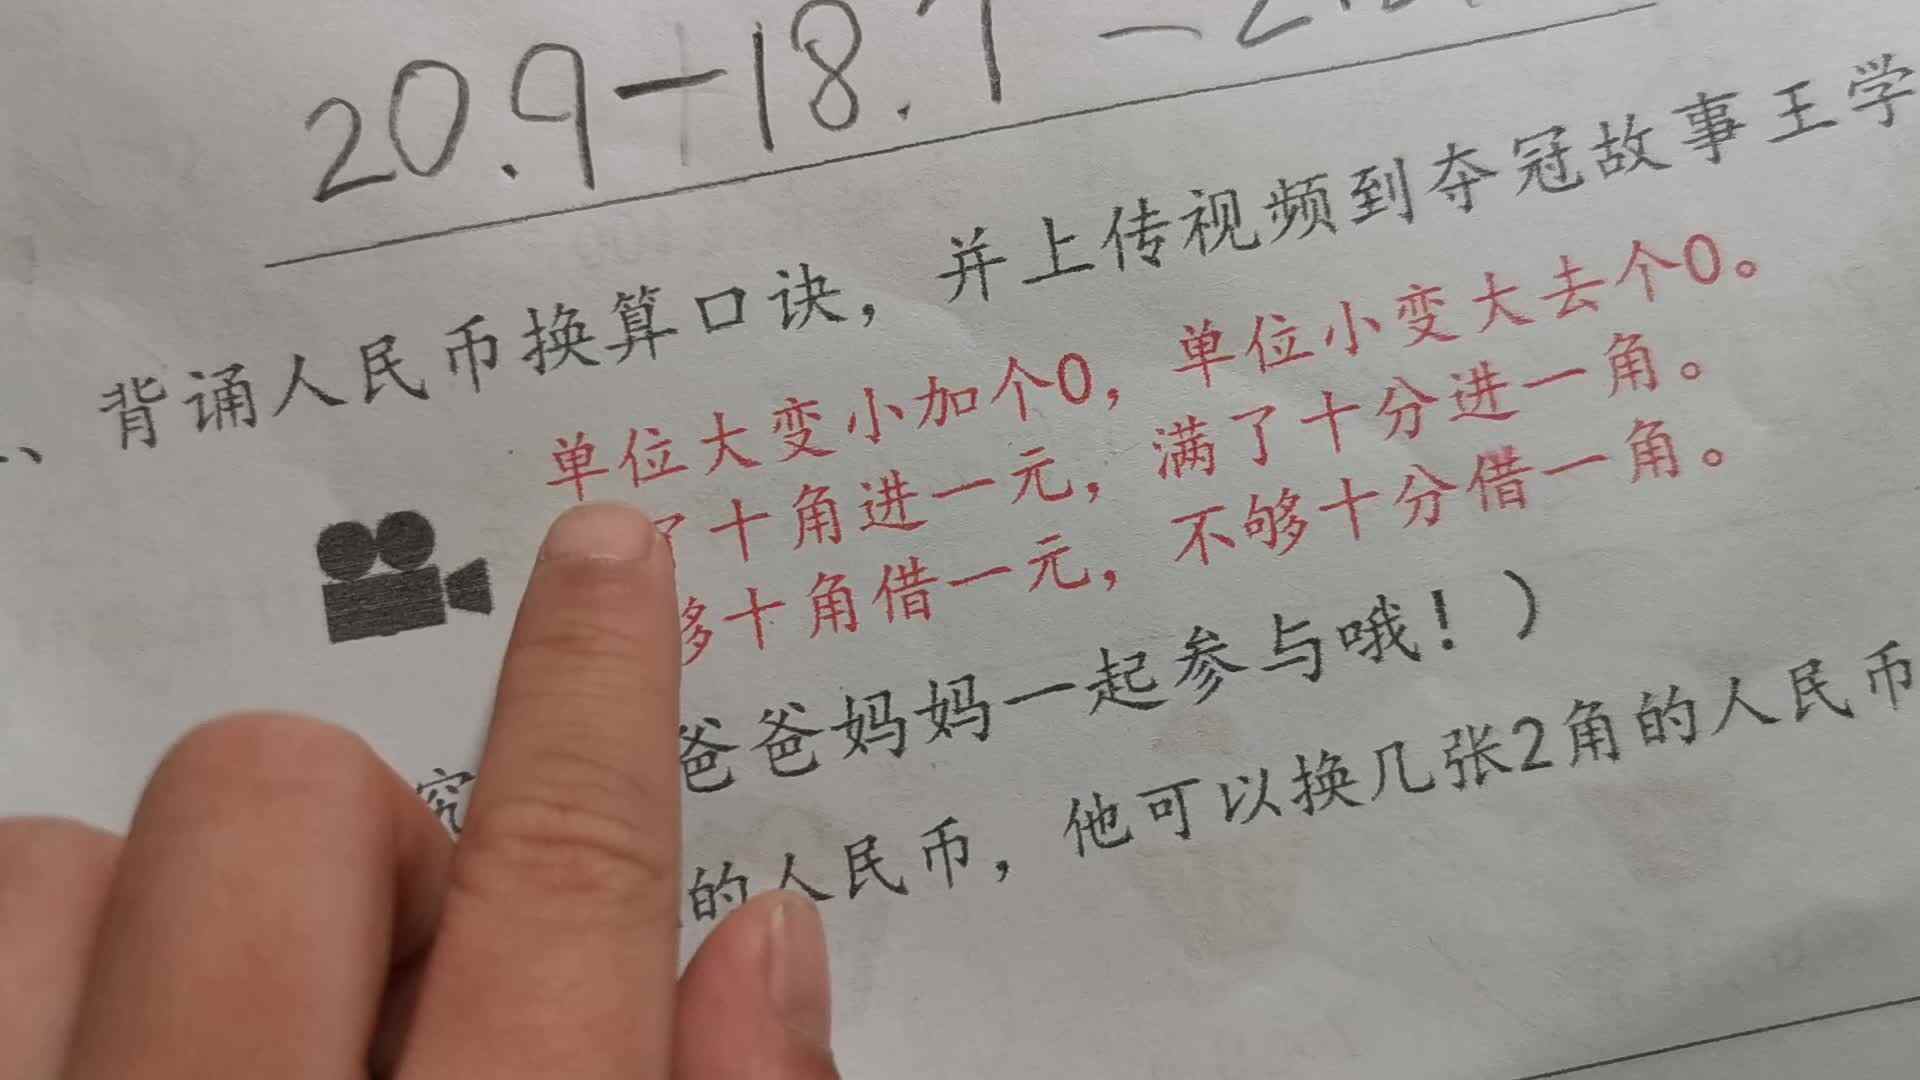 20.9-18.7
背诵人民币换算口诀，并上传视频到夺冠故事王学
单位大变小加个0，单位小变大去个0。
了十角进一元，满了十分进一角。
够十角借一元，不够十分借一角。
爸爸妈妈一起参与哦！）
的人民币，他可以换几张2角的人民币